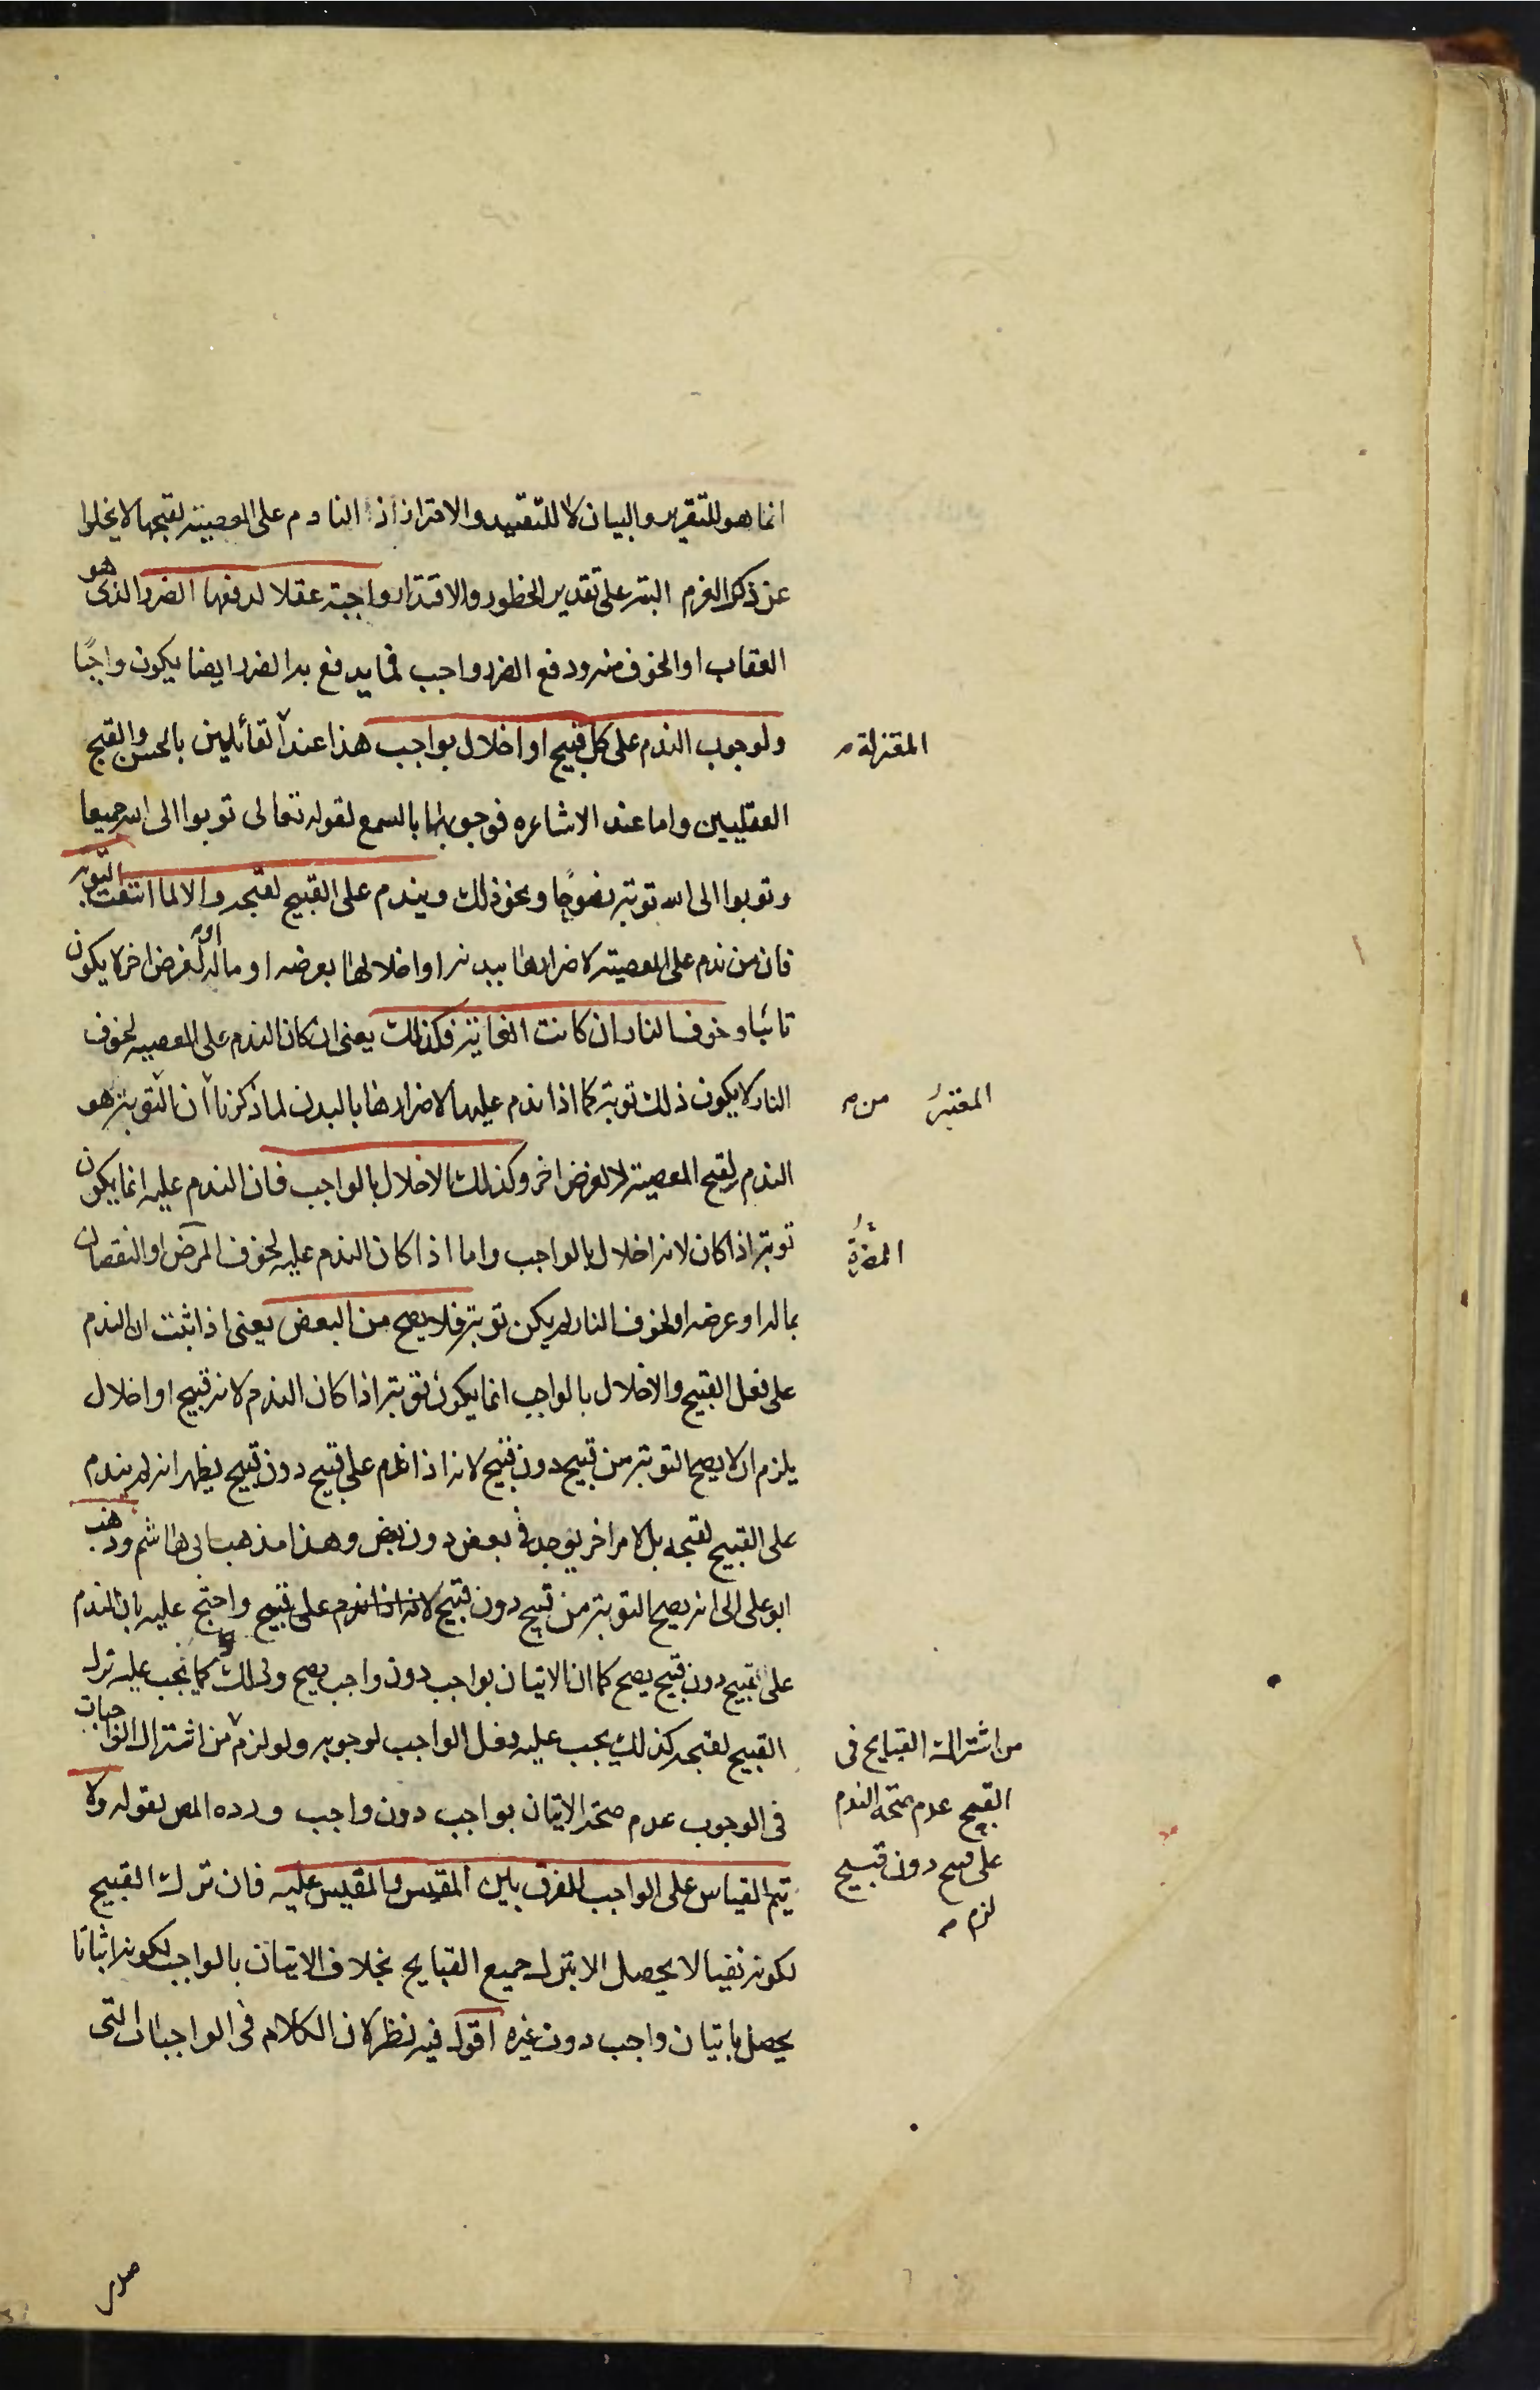 انما هو للتقرير والبيان لا للتقييد والاحتراز اذ النادم على المعصية لقبحها لا يخلوا
عن ذكر العزم البتة على تقدير الخطور والاقتدار واجبة عقلا لدفعها الضرر الذى هو
العقاب او الخوف منه ودفع الضرر واجب فما يدفع به الضرر ايضا يكون واجبًا
ولوجوب الندم على كل قبيح او اخلال بواجب هذا عند القائلين بالحسن والقبح
المعتزلة
العقليين واما عند الاشاعره فوجوبها بالسمع لقوله تعالى توبوا الى الله جميعا
وتوبوا الى الله توبة نصوحًا ونحو ذلك ويندم على القبيح لقبحه والا لما انتفت التوبة
فان من ندم على المعصية لاضرارها ببدنه او اخلالها بعرضه او ماله او لغرض اخر لا يكون
تائبا وخوف النار ان كانت الغاية فكذلك يعنى ان كان الندم على المعصيه لخوف
النار لا يكون ذلك توبة كما اذا ندم عليها لاضرارها بالبدن لما ذكرنا ان التوبة هو
المعتبر من
الندم لقبح المعصية لا لغرض اخر وكذلك الاخلال بالواجب فان الندم عليه انما يكون
توبة اذا كان لانه اخلال بالواجب واما اذا كان الندم عليه لخوف المرض او النقصان
المضرة
بماله او عرضه او لخوف النار لم يكن توبة فلا يصح من البعض يعنى اذا ثبت ان الندم
على فعل القبيح والاخلال بالواجب انما يكون توبة اذا كان الندم لانه قبيح او اخلال
يلزم ان لا يصح التوبة من قبيح دون قبيح لانه اذا ندم على قبيح دون قبيح يظهر انه لم يندم
على القبيح لقبحه بل لامر اخر يوجد فى بعض دون بعض وهذا مذهب ابى هاشم وذهب
ابو على الى انه يصح التوبة من قبيح دون قبيح لانه اذا ندم على قبيح واحتج عليه بان الندم
على قبيح دون قبيح يصح كما ان الاتيان بواجب دون واجب يصح وذلك كما يجب عليه ترك
القبيح لقبحه كذلك يجب عليه فعل الواجب لوجوبه ولو لزم من اشتراك الواجبات
من اشتراك القبايح فى
القبح عدم صحة الندم
على قبيح دون قبيح
لزم
فى الوجوب عدم صحة الاتيان بواجب دون واجب ورده المص بقوله ولا
يتم القياس على الواجب للفرق بين المقيس والمقيس عليه فان ترك القبيح
لكونه نفيا لا يحصل الا بترك جميع القبايح بخلاف الاتيان بالواجب لكونه اثباتا
يحصل باتيان واجب دون غيره اقول فيه نظر لان الكلام فى الواجبات التى